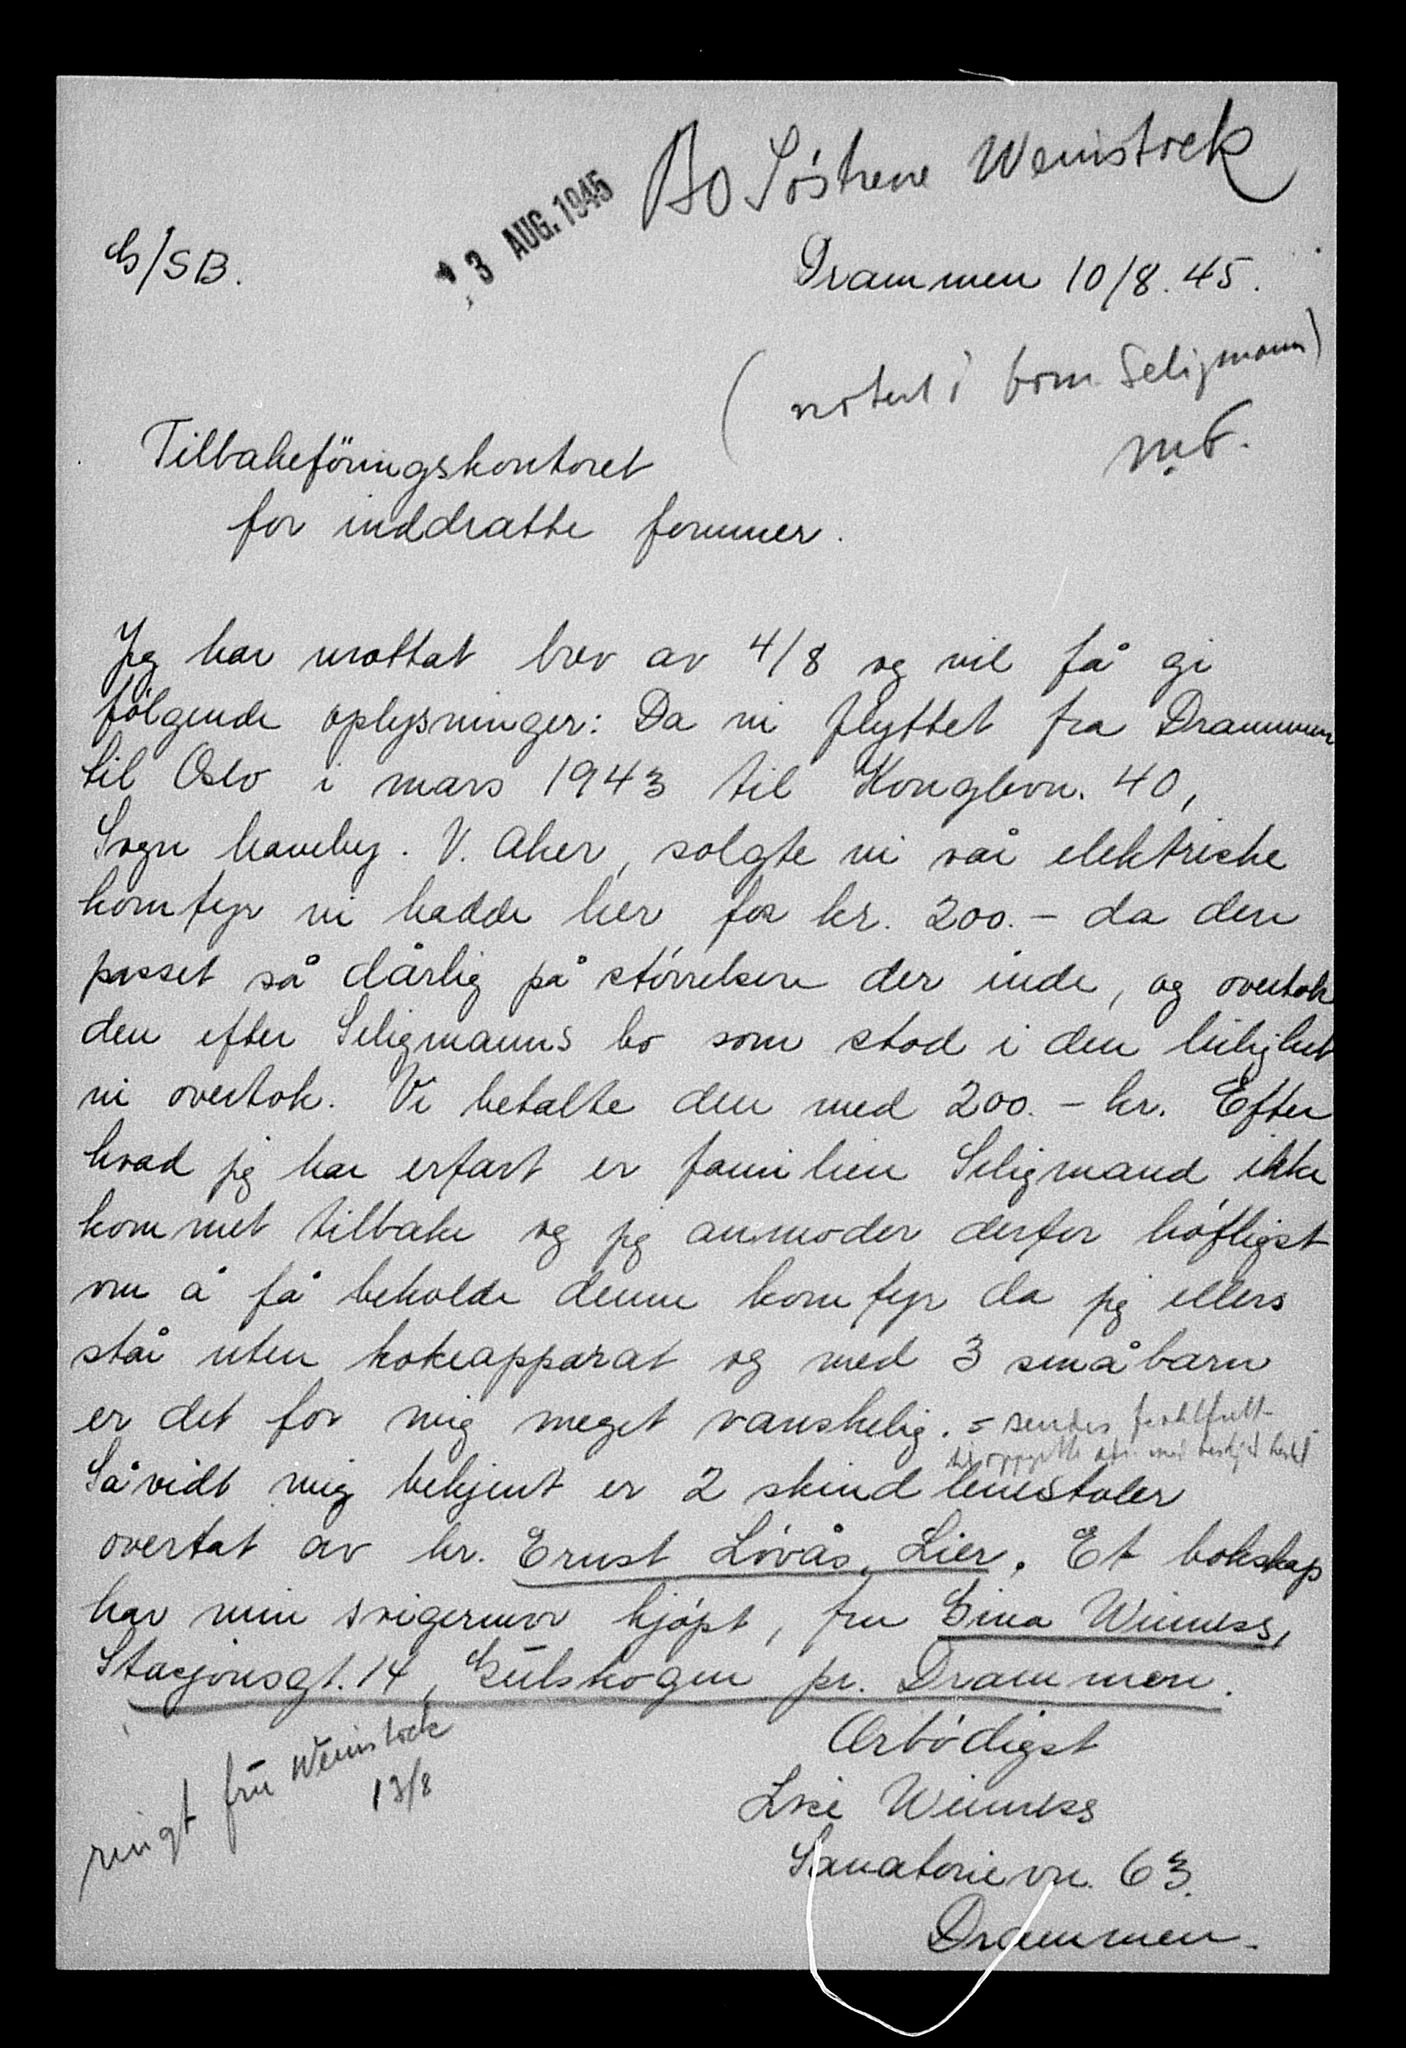 Bo Søstrene Weinstock
13 AUG. 1945
G/SB.
Drammen 10/8. 45.
(notert i bom Seligmann)
Tilbakeföringskontoret
for inddratte formuer.
Jeg har mottat brev av 4/8 og vil få gi
følgende oplysninger: Da vi flyttet fra Drammen
til Oslo i mars 1943 til Konglevn. 40,
Sogn haveby. V. Aker, solgte vi vår elektriske
komfyr vi hadde her for kr. 200.- da den
passet så dårlig på størrelsen der inde, og overtok
den efter Seligmanns bo som stod i den leilighet
vi overtok. Vi betalte den med 200.- kr. Efter
hvad jeg har erfart er familien Seligmand ikke
kommet tilbake og jeg anmoder derfor høfligst
om å få beholde denne komfyr da jeg ellers
står uten kokeapparat og med 3 småbarn
er det for mig meget vanskelig. = sendes
Såvidt mig bekjent er 2 skind lenestoler
overtat av hr. Ernst Løvås, Lier. Et bokskap
har min svigermor kjøpt, fru Gina Winness,
Stasjonsgt. 14, Gulskogen pr. Drammen.
Ærbødigst
ringt frü Weinstock
13/8
Winness
Sanatorievn. 63.
Drammen.